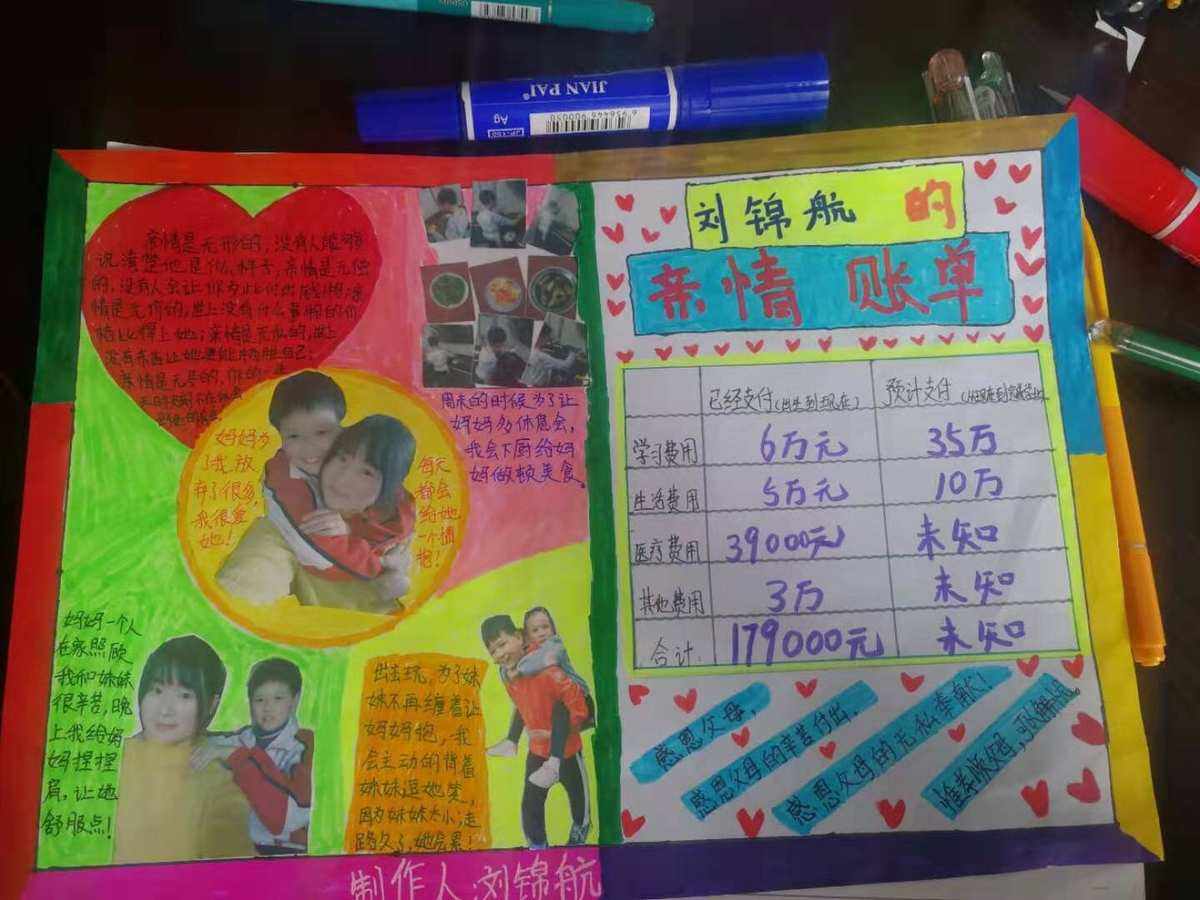 JIAN PAI
Ag
6 936446 900020
亲情是无形的，没有人能够
说清楚他是什么样子；亲情是无偿
的，没有人会让你为此付出
情是无价的，世上没有什么
亲情是无私的，世上
亲情是无尽的，
妈妈为
了我，放
弃了很多，
我很爱
她！
每天
都会
给她
一个拥
抱！
周末的时候为了让
妈妈多休息会，
我会下厨给妈
妈做顿美食。
妈妈一个人
在家照顾
我和妹妹
很辛苦，晚
上我给妈
妈捏捏
肩，让她
舒服点！
出去玩，为了妹
妹不再缠着让
妈妈抱，我
会主动的背着
妹妹逗她笑，
因为妹妹太小；走
路久了，她会累！
制作人：刘锦航
刘锦航的
亲情账单
已经支付（出生到现在） 预计支付
学习费用 6万元 35万
生活费用 5万元 10万
医疗费用 39000元 未知
其他费用 3万 未知
合计： 179000元 未知
感恩父母，
感恩父母的辛苦付出。
感恩父母的无私奉献！